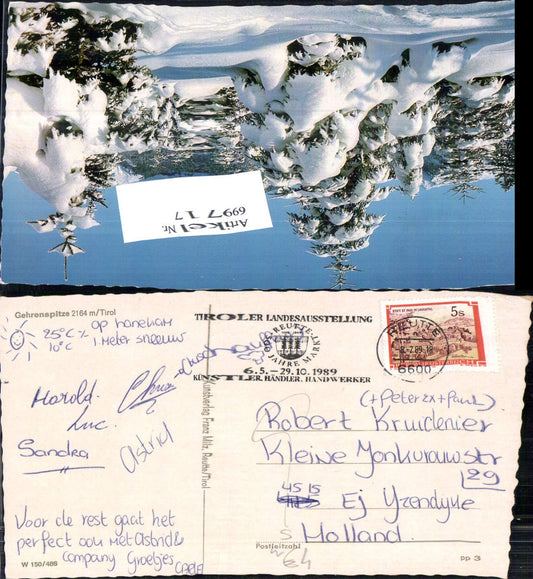 Artikel Nr.
6997 17
Gehrenspitze 2164 m/Tirol
25°C
10°C 1 Meter sneeuw
Harold
Luc.
Sandra
Astrid
Voor de rest gaat het
perfect ook met Astrid &
Company Groetjes
W 150/486
Kunstverlag Franz Milz, Reutte/Tirol
TIROLER LANDESAUSSTELLUNG
REUTTE
JAHRE MARKT
6.5.-29.10.1989
KÜNSTLER, HÄNDLER, HANDWERKER
5s
REUTTE
6600
(+Peter 2x + Paul)
Robert Kruidenier
Kleine Jonkvrouwstr
29
4515 EJ Yzendyke
Holland.
Postleitzahl
pp 3